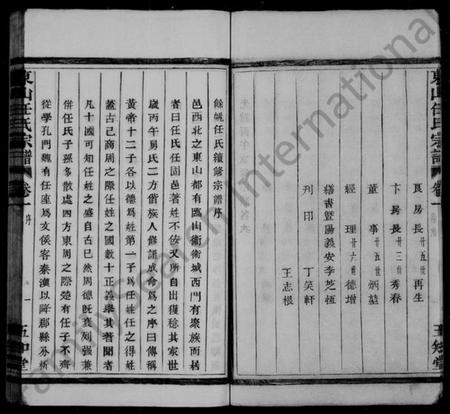 東山任氏宗譜
卷一
良房長 廿五世 再生
卞房長 廿三世 秀春
董事 廿五世 炳堃
經理 廿六甫 德增
繕書暨陽義安李芝恆
刋印 丁笑軒
王志根
五知堂
餘姚任氏續修宗譜序
邑西北之東山都有臨山衛衛城西門有衆族而居
者曰任氏任固邑著姓不佞又所自出獲稔其家世
歲丙午舅氏二方偕族人修譜成命爲之序曰傳稱
黃帝十二子各以德爲姓第一子爲任姓任之得姓
蓋古已商周之際任姓之國數十正義舉其著聞者
凡十國可知任姓之盛自古已然周德旣衰列強兼
併任氏子孫多散處四方東周之際楚有任子不齊
從學孔門魏有任座爲文侯客秦漢以降郡縣分析
東山任氏宗譜
卷一
序
一
五知堂
FamilySearch International